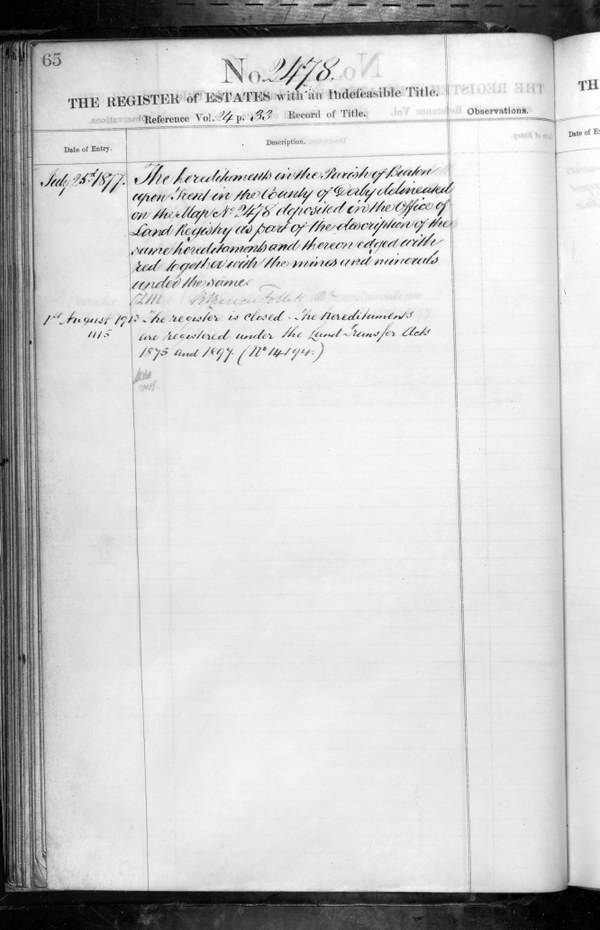 65
No. 2478.
THE REGISTER of ESTATES with an Indefeasible Title.
Reference Vol. 24 p. 33 Record of Title.
Observations.
Date of Entry.
Description.
July 25th 1877.
The hereditaments in the Parish of Burton
upon Trent in the County of Derby delineated
on the Map No 2478 deposited in the Office of
Land Registry as part of the description of the
same hereditaments and thereon edged with
red together with the mines and minerals
under the same
1st August 1913
1115
The register is closed. The hereditaments
are registered under the Land Transfer Acts
1875 and 1897. (No 14194.)
TH
Date of E